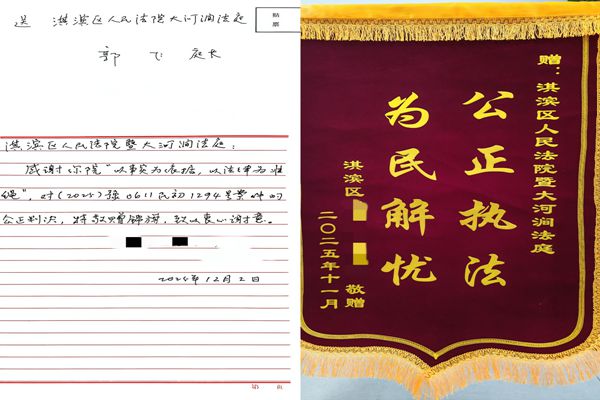 送 淇滨区人民法院大河涧法庭
贴
票
郭 飞 庭长
淇滨区人民法院暨大河涧法庭：
感谢你院“以事实为依据，以法律为准
绳”，对(2025)豫0611民初1294号案件的
公正判决，特敬赠锦旗，致以衷心谢意。
2025年12月2日
第 页
赠：淇滨区人民法院暨大河涧法庭
公正执法
为民解忧
淇滨区 敬赠
二〇二五年十一月